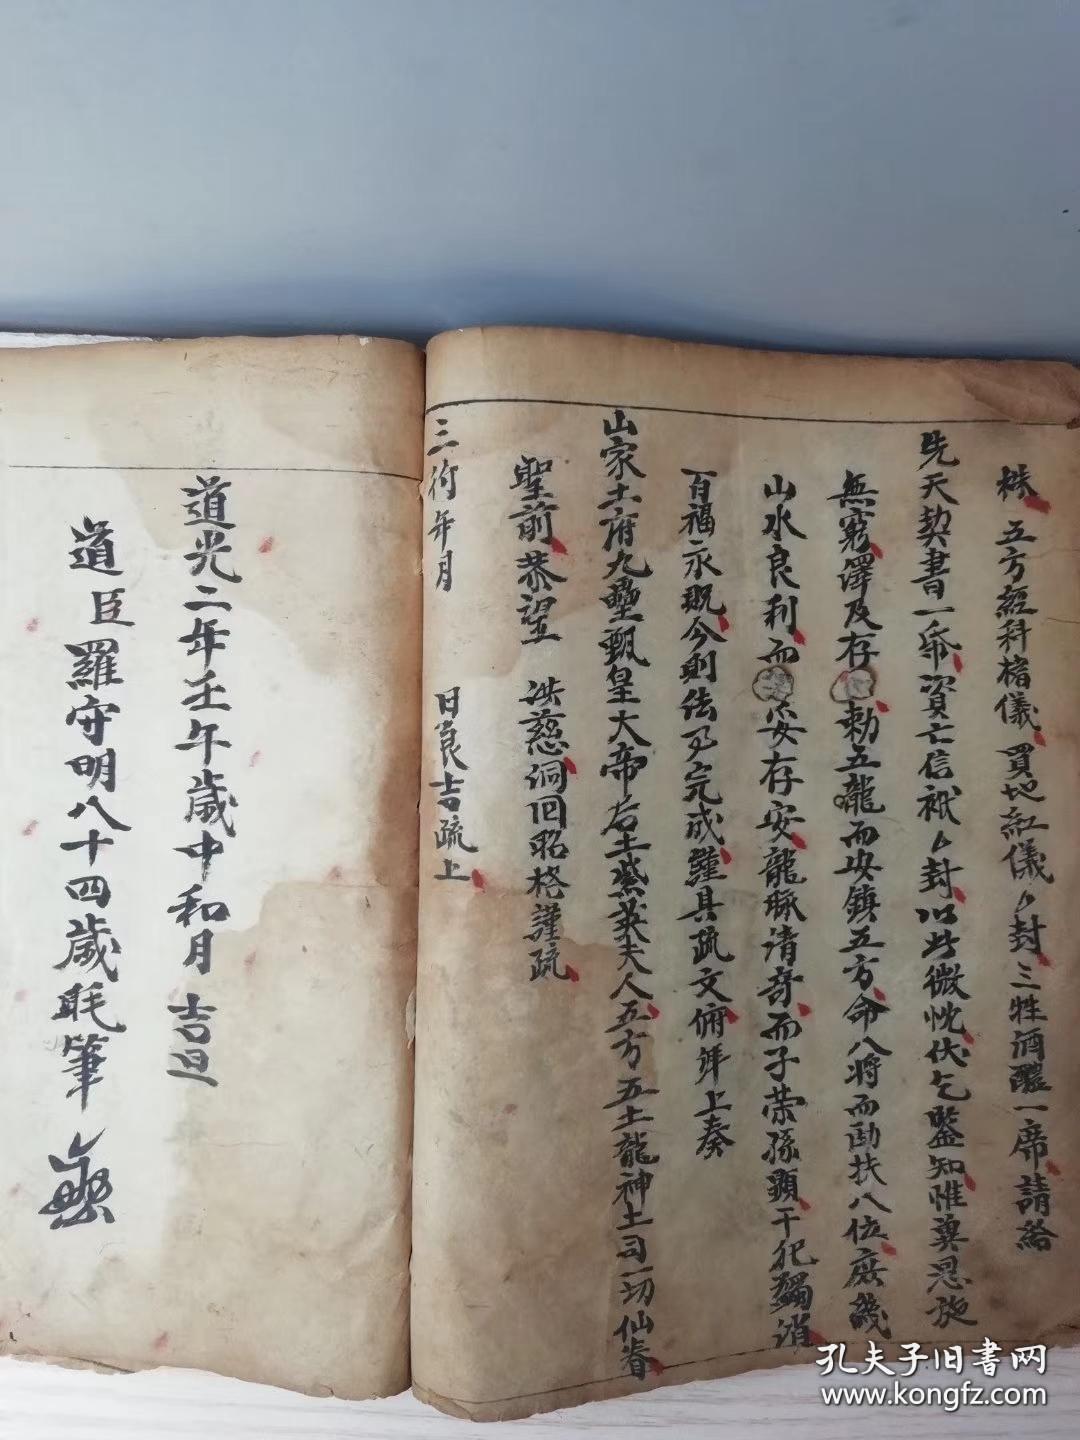 五方經科楮儀買地紅儀々封三牲酒醴一席請給
先天契書一帋資亡信袱々封以此微忱伏乞鑒知惟冀恩施
無窮澤及存勅五龍而安鎮五方命八將而助扶八位庶幾
山水良利而妥存安龍脉清奇而子榮孫顯干犯蠲消
百福永貺今則法事完成謹具疏文俯拜上奏
山家土府九壘甄皇大帝后土蕊英夫人五方五土龍神土司一切仙眷
聖前恭望 洪慈洞回昭格謹疏
年月 日良吉疏上
道光二年壬午歲中和月吉旦
道臣羅守明八十四歲毛筆
孔夫子旧书网
www.kongfz.com